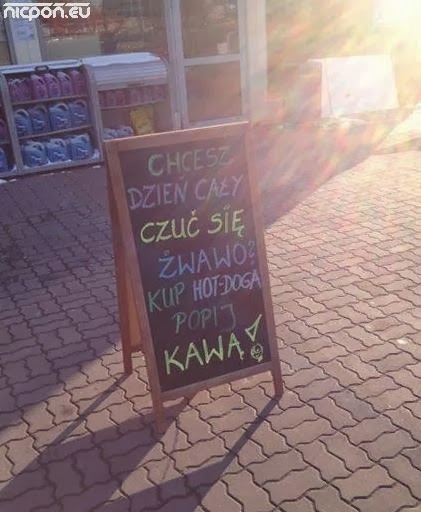 nicpon.eu
CHCESZ
DZIEŃ CAŁY
CZUĆ SIĘ
ŻWAWO?
KUP HOT-DOGA
POPIJ
KAWĄ!